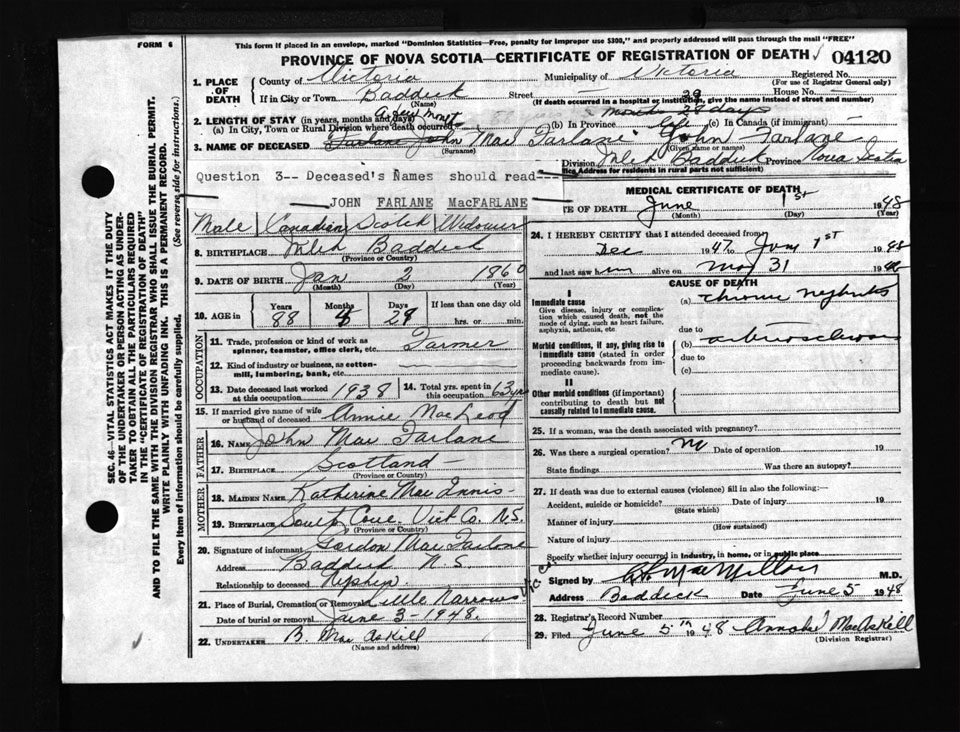 FORM 6
This form if placed in an envelope, marked "Dominion Statistics—Free, penalty for improper use $300," and properly addressed will pass through the mail "FREE"
PROVINCE OF NOVA SCOTIA—CERTIFICATE OF REGISTRATION OF DEATH 04120
SEC. 46—VITAL STATISTICS ACT MAKES IT THE DUTY OF THE UNDERTAKER OR PERSON ACTING AS UNDERTAKER TO OBTAIN ALL THE PARTICULARS REQUIRED IN THE "CERTIFICATE OF REGISTRATION OF DEATH"
AND TO FILE THE SAME WITH THE DIVISION REGISTRAR WHO SHALL ISSUE THE BURIAL PERMIT.
WRITE PLAINLY WITH UNFADING INK. THIS IS A PERMANENT RECORD.
Every item of Information should be carefully supplied. (See reverse side for instructions.)
1. PLACE OF DEATH
County of Victoria Municipality of Victoria Registered No.
(For use of Registrar General only)
If in City or Town Baddeck Street — House No. —
(Name) (If death occurred in a hospital or institution, give the name instead of street and number)
2. LENGTH OF STAY (in years, months and days)
(a) In City, Town or Rural Division where death occurred (b) In Province life (c) In Canada (if immigrant) —
3. NAME OF DECEASED Mac Farlane John Farlane
(Surname) (Given name or names)
Division Baddeck Province Nova Scotia
Office Address for residents in rural parts not sufficient)
Question 3-- Deceased's Names should read---
JOHN FARLANE MacFARLANE
Male Canadian Scotch Widower
8. BIRTHPLACE Baddeck
(Province or Country)
9. DATE OF BIRTH Jan 2 1860
(Month) (Day) (Year)
10. AGE in Years Months Days If less than one day old
88 4 29 hrs. or min.
OCCUPATION
11. Trade, profession or kind of work as spinner, teamster, office clerk, etc. Farmer
12. Kind of industry or business, as cotton-mill, lumbering, bank, etc.
13. Date deceased last worked at this occupation 1938 14. Total yrs. spent in this occupation 63 yrs
15. If married give name of wife or husband of deceased Annie MacLeod
FATHER
16. NAME John Mac Farlane
17. BIRTHPLACE Scotland
(Province or Country)
MOTHER
18. MAIDEN NAME Katherine Mac Innis
19. BIRTHPLACE South Cove Vict Co. N.S.
(Province or Country)
20. Signature of informant Gordon Mac Farlane
Address Baddeck N.S.
Relationship to deceased Nephew
21. Place of Burial, Cremation or Removal Little Narrows
Date of burial or removal June 3 - 1948.
22. UNDERTAKER B. Mac Askill
(Name and address)
MEDICAL CERTIFICATE OF DEATH
TE OF DEATH June 1st 1948
(Month) (Day) (Year)
24. I HEREBY CERTIFY that I attended deceased from
Dec 1947 to June 1st 1948
and last saw him alive on May 31 1948
CAUSE OF DEATH
I
Immediate cause
Give disease, injury or complication which caused death, not the mode of dying, such as heart failure, asphyxia, asthenia, etc
(a) chronic nephritis
due to
Morbid conditions, if any, giving rise to immediate cause (stated in order proceeding backwards from immediate cause).
(b) arteriosclerosis
due to
(c)
II
Other morbid conditions (if important) contributing to death but not causally related to immediate cause.
25. If a woman, was the death associated with pregnancy?
26. Was there a surgical operation? No Date of operation 19
State findings Was there an autopsy?
27. If death was due to external causes (violence) fill in also the following:—
Accident, suicide or homicide? Date of injury 19
(State which)
Manner of injury
(How sustained)
Nature of injury
Specify whether injury occurred in industry, in home, or in public place
Signed by MacMillan M.D.
Address Baddeck Date June 5 1948
28. Registrar's Record Number
29. Filed June 5th 1948 Annabel MacAskill
(Division Registrar)